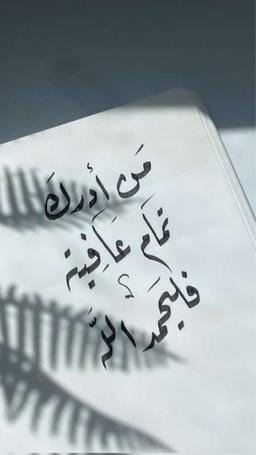 مَن أدركَ
تمامَ عَافِية
فليَحمد اللَّه